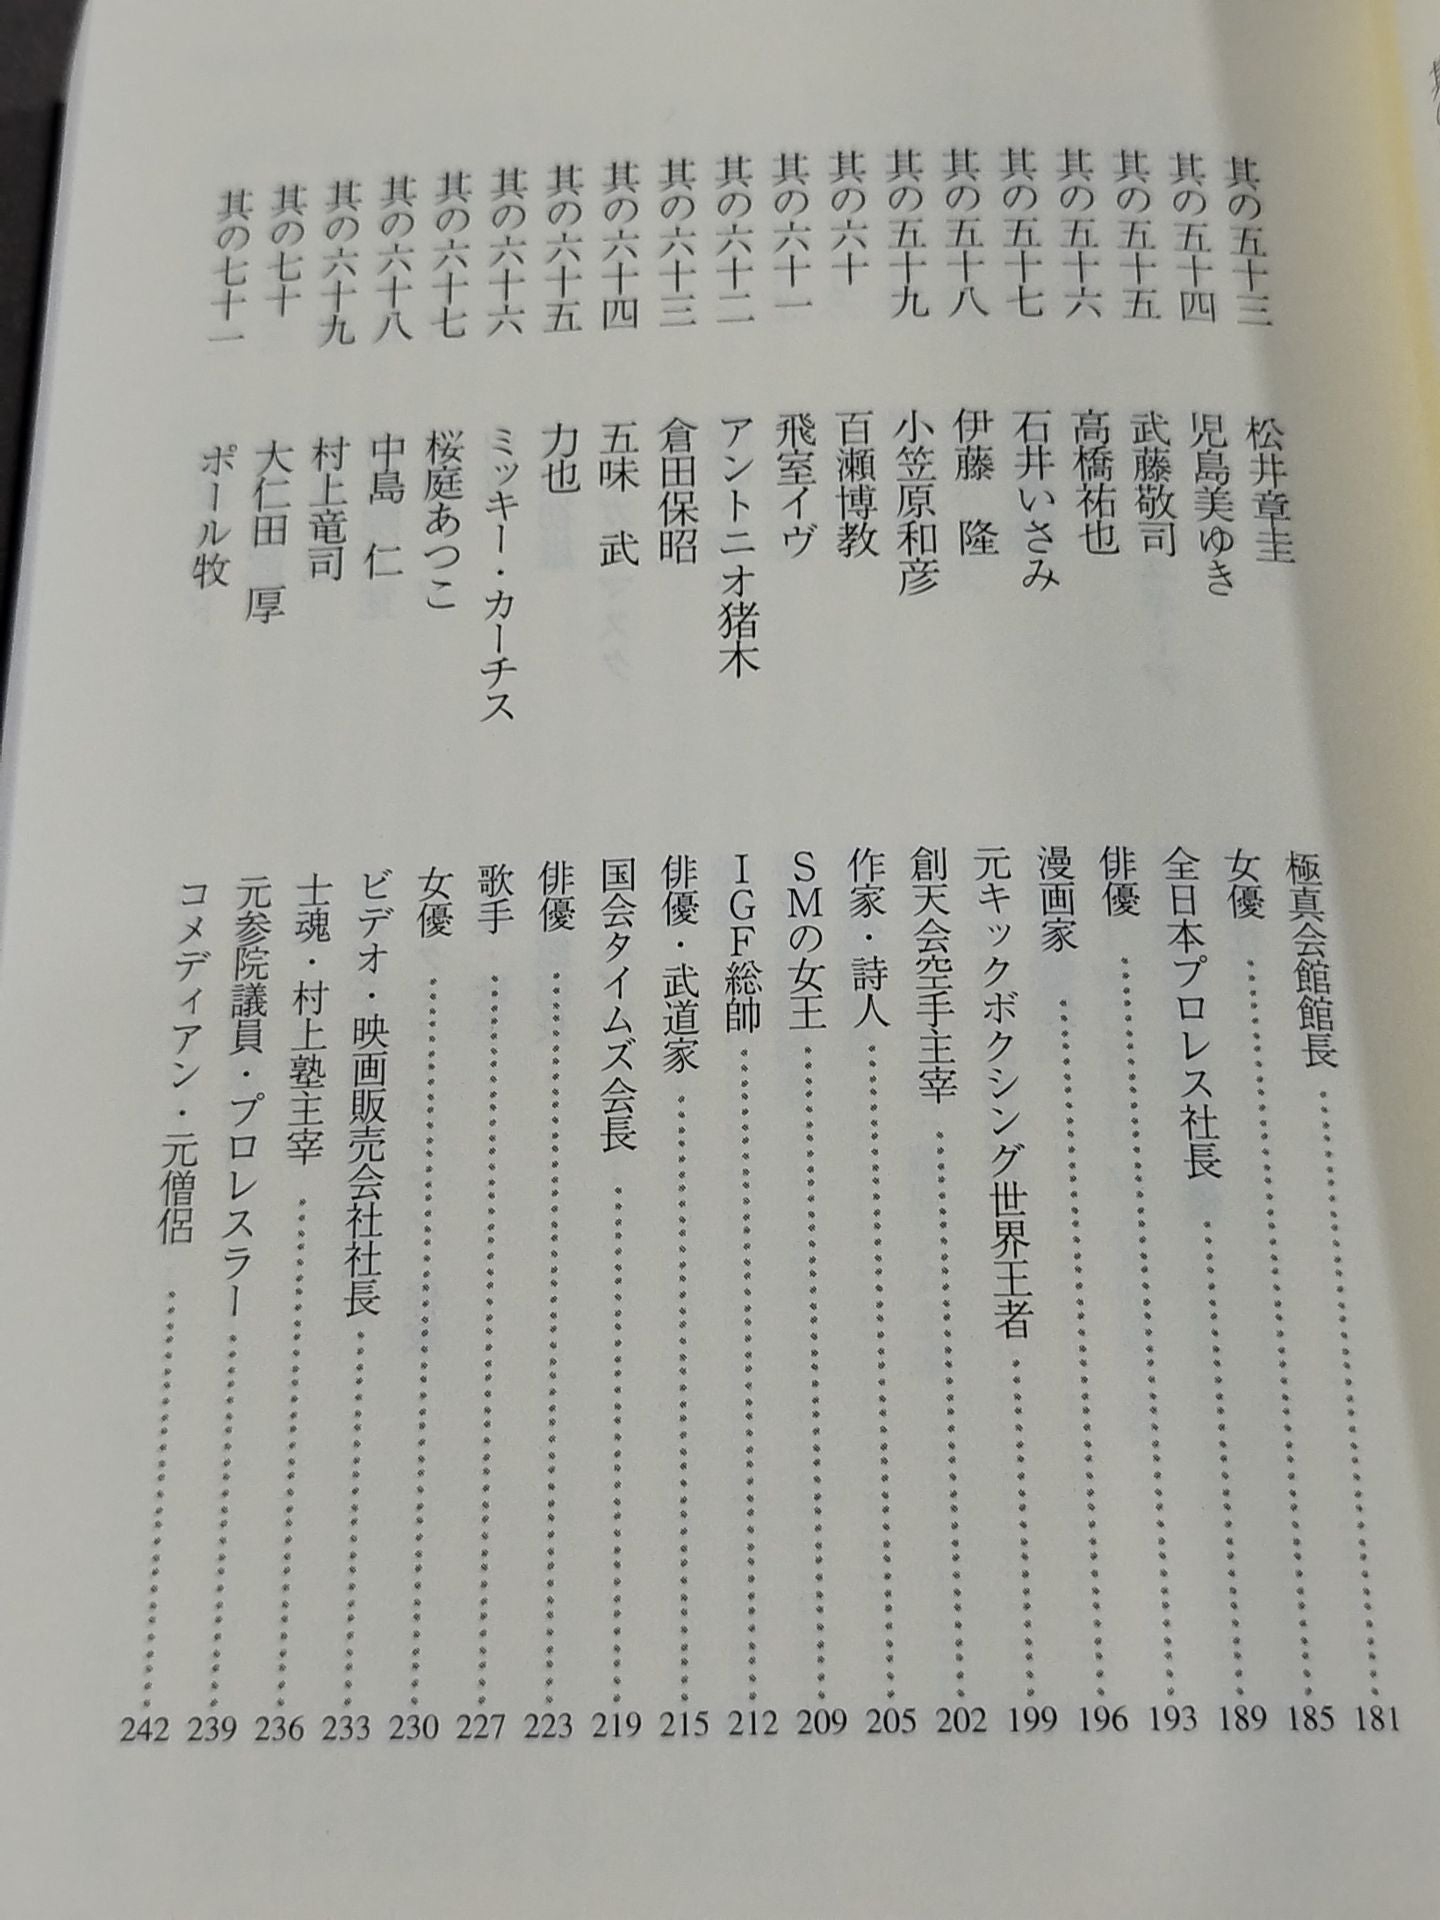 其の五十三 松井章圭 極真会館館長 181
其の五十四 児島美ゆき 女優 185
其の五十五 武藤敬司 全日本プロレス社長 189
其の五十六 高橋祐也 俳優 193
其の五十七 石井いさみ 漫画家 196
其の五十八 伊藤 隆 元キックボクシング世界王者 199
其の五十九 小笠原和彦 創天会空手主宰 202
其の六十 百瀬博教 作家・詩人 205
其の六十一 飛室イヴ SMの女王 209
其の六十二 アントニオ猪木 IGF総帥 212
其の六十三 倉田保昭 俳優・武道家 215
其の六十四 五味 武 国会タイムズ会長 219
其の六十五 力也 俳優 223
其の六十六 ミッキー・カーチス 歌手 227
其の六十七 桜庭あつこ 女優 230
其の六十八 中島 仁 ビデオ・映画販売会社社長 233
其の六十九 村上竜司 士魂・村上塾主宰 236
其の七十 大仁田 厚 元参院議員・プロレスラー 239
其の七十一 ポール牧 コメディアン・元僧侶 242